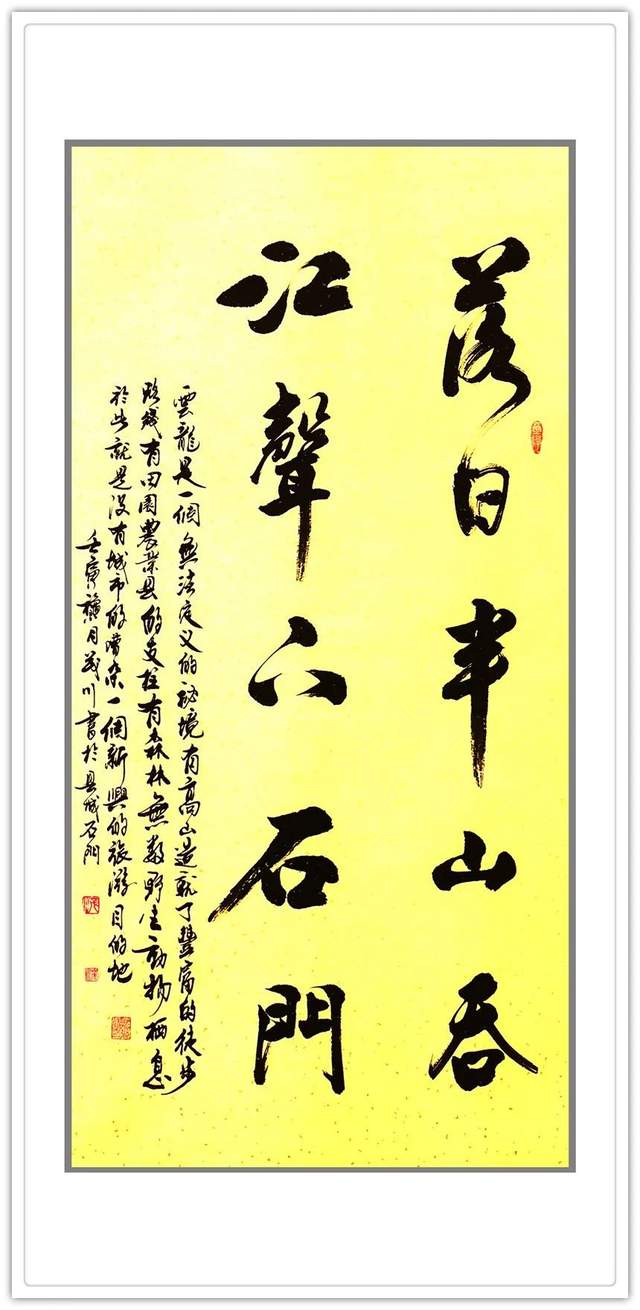 落日半山吞
江聲下石門
雲龍是一個無法定义的祕境有高山造就了豐富的徒步
路綫有田園農業县的支柱有森林無数野生動物栖息
於此就是没有城市的嘈杂一個新興的旅游目的地
壬寅臘月茂川書於县城石門